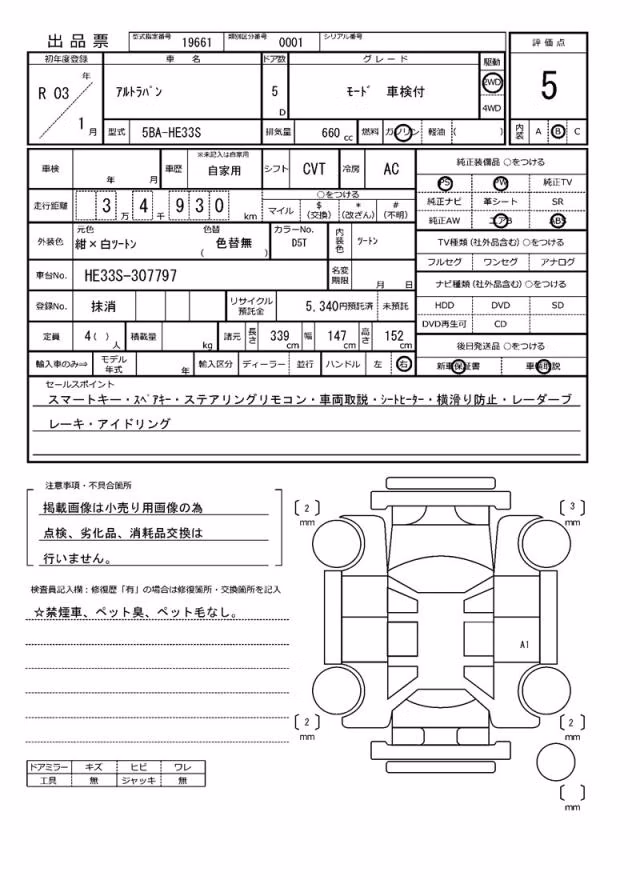 出品票 型式指定番号 19661 類別区分番号 0001 シリアル番号
評価点
5
内装 A B C
初年度登録 車名 ドア数 グレード 駆動
R 03 年 1 月 アルトラパン 5 D モード 車検付 2WD 4WD
型式 5BA-HE33S 排気量 660 cc 燃料 ガソリン 軽油 ( )
車検 年 月 車歴 ※未記入は自家用 自家用 シフト CVT 冷房 AC
走行距離 3 万 4 千 9 3 0 km ○をつける
マイル $ (交換) * (改ざん) # (不明)
外装色 元色 紺×白ツートン 色替 色替無 ( ) カラーNo. D5T 内装色 ツートン
車台No. HE33S-307797 名変期限 月 日
登録No. 抹消 リサイクル預託金 5,340円預託済 未預託
定員 4( ) 人 積載量 kg 諸元 長さ 339 cm 幅 147 cm 高さ 152 cm
輸入車のみ⇒ モデル年式 年 輸入区分 ディーラー 並行 ハンドル 左 右
純正装備品 ○をつける
PS PW 純正TV
純正ナビ 革シート SR
純正AW エアB ABS
TV種類(社外品含む)○をつける
フルセグ ワンセグ アナログ
ナビ種類(社外品含む)○をつける
HDD DVD SD
DVD再生可 CD
後日発送品 ○をつける
新車保証書 車輌取説
セールスポイント
スマートキー・スペアキー・ステアリングリモコン・車両取説・シートヒーター・横滑り防止・レーダーブ
レーキ・アイドリング
注意事項・不具合箇所
掲載画像は小売り用画像の為
点検、劣化品、消耗品交換は
行いません。
検査員記入欄：修復歴「有」の場合は修復箇所・交換箇所を記入
☆禁煙車、ペット臭、ペット毛なし。
ドアミラー キズ ヒビ ワレ
工具 無 ジャッキ 無
〔 2 〕 mm
〔 3 〕 mm
A1
〔 2 〕 mm
〔 2 〕 mm
〔 〕 mm